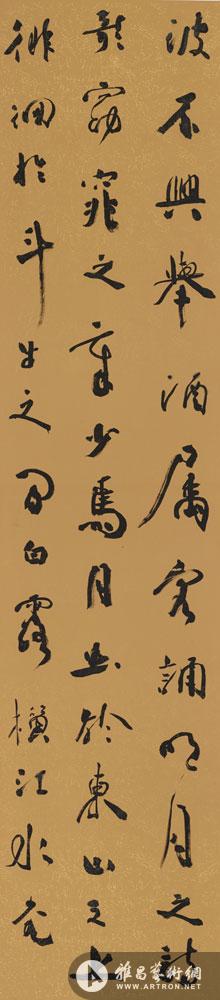 波不興舉酒屬客誦明月之詩
歌窈窕之章少焉月出於東山之上
徘徊於斗牛之間白露橫江水光
雅昌藝術網
WWW.ARTRON.NET